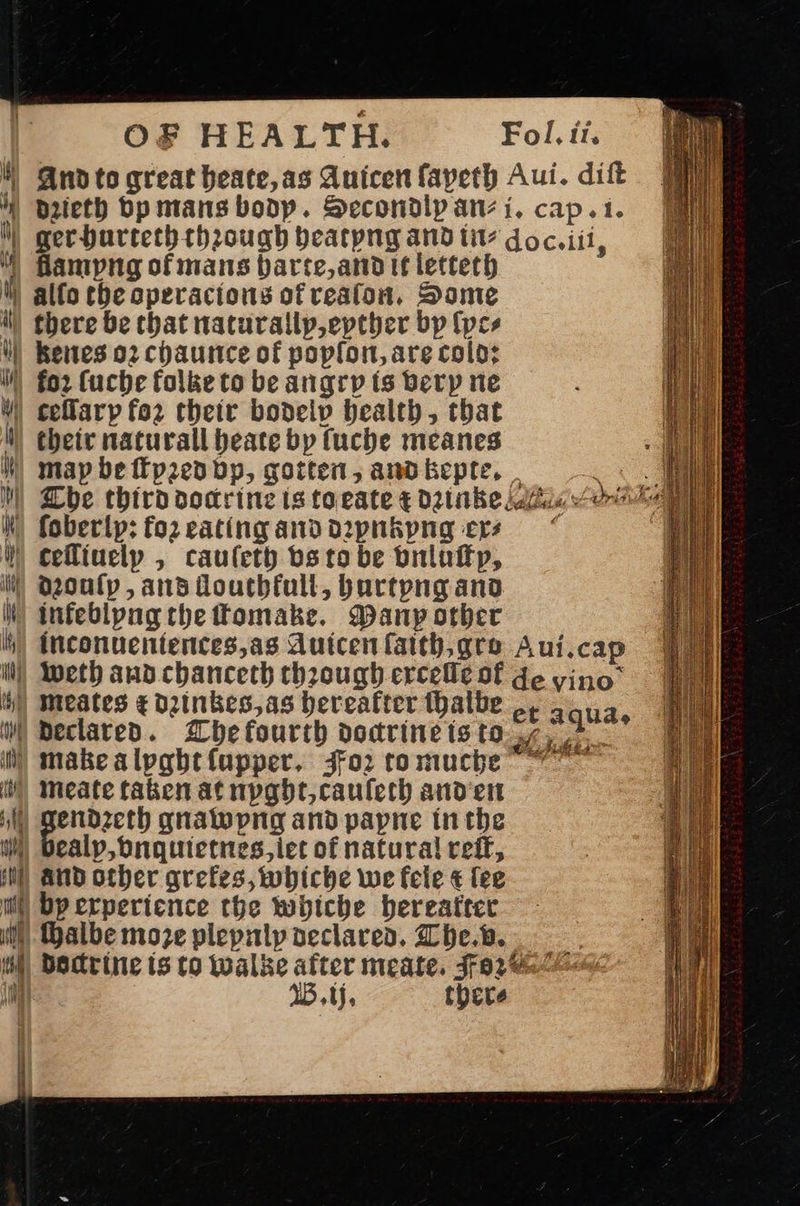 OF HEALTH. Fol. ii.
And to great heate, as Auicen sayeth Aui. dist
drieth vp mans body. Secondly an- i. cap. i.
ger hurteth through heatyng and in- doc. iii,
flamyng of mans harte, and it letteth
also the operacions of reason. Some
there be that naturally, eyther by syc-
kenes or chaunce of poyson, are cold:
for suche folke to be angry is very ne
cessary for their bodely health, that
their naturall heate by suche meanes
may be styred vp, gotten, and kepte.
The third doctrine is to eate & drinke
soberly: for eating and drynkyng ex-
cessiuely, causeth vs to be vnlusty,
drousy, and slouthfull, hurtyng and
infeblyng the stomake. Many other
inconueniences, as Auicen saith, gro Aui. cap
weth and chanceth through excesse of de vino
meates & drinkes, as hereafter shalbe et aqua.
declared. The fourth doctrine is to
make a lyght supper. For to muche
meate taken at nyght, causeth and en
gendreth gnawyng and payne in the
bealy, vnquietnes, let of natural rest,
and other grefes, whiche we fele & see
by experience the whiche hereafter
shalbe more pleynly declared. The .v.
doctrine is to walke after meate. For
B.ij. there